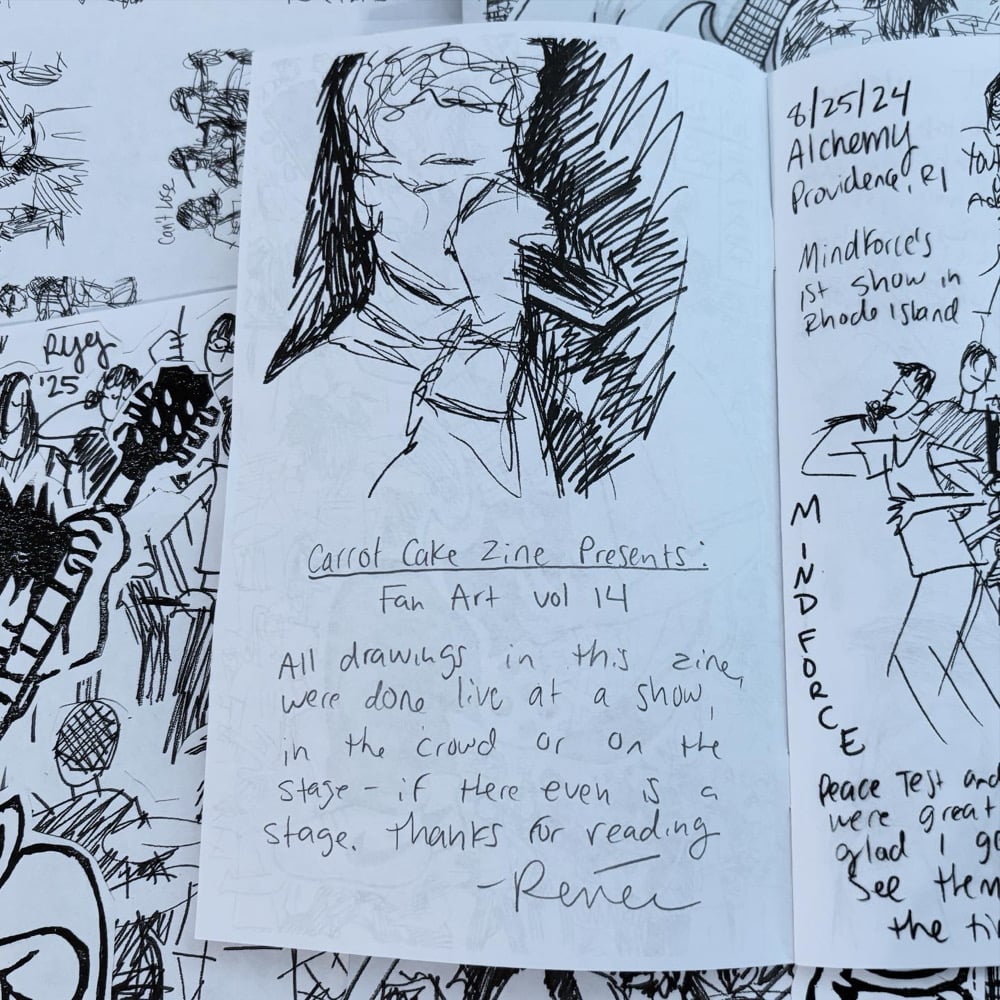 Can't lose
Ryey
'25
Carrot Cake Zine Presents:
Fan Art vol 14
All drawings in this zine,
were done live at a show,
in the crowd or on the
stage - if there even is a
stage. Thanks for reading
-Renée
8/25/24
Alchemy
Providence, RI
Mindforce's
1st show in
Rhode Island
MINDFORCE
Peace Test and
were great
glad I
see them
the